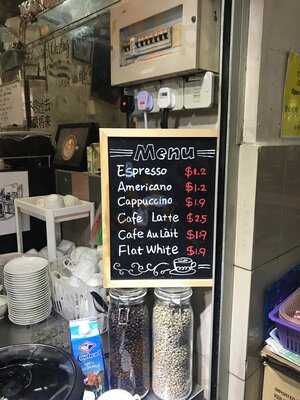 Menu
Espresso $1.2
Americano $1.2
Cappuccino $1.9
Cafe Latte $2.5
Cafe Au Làit $1.9
Flat White $1.9